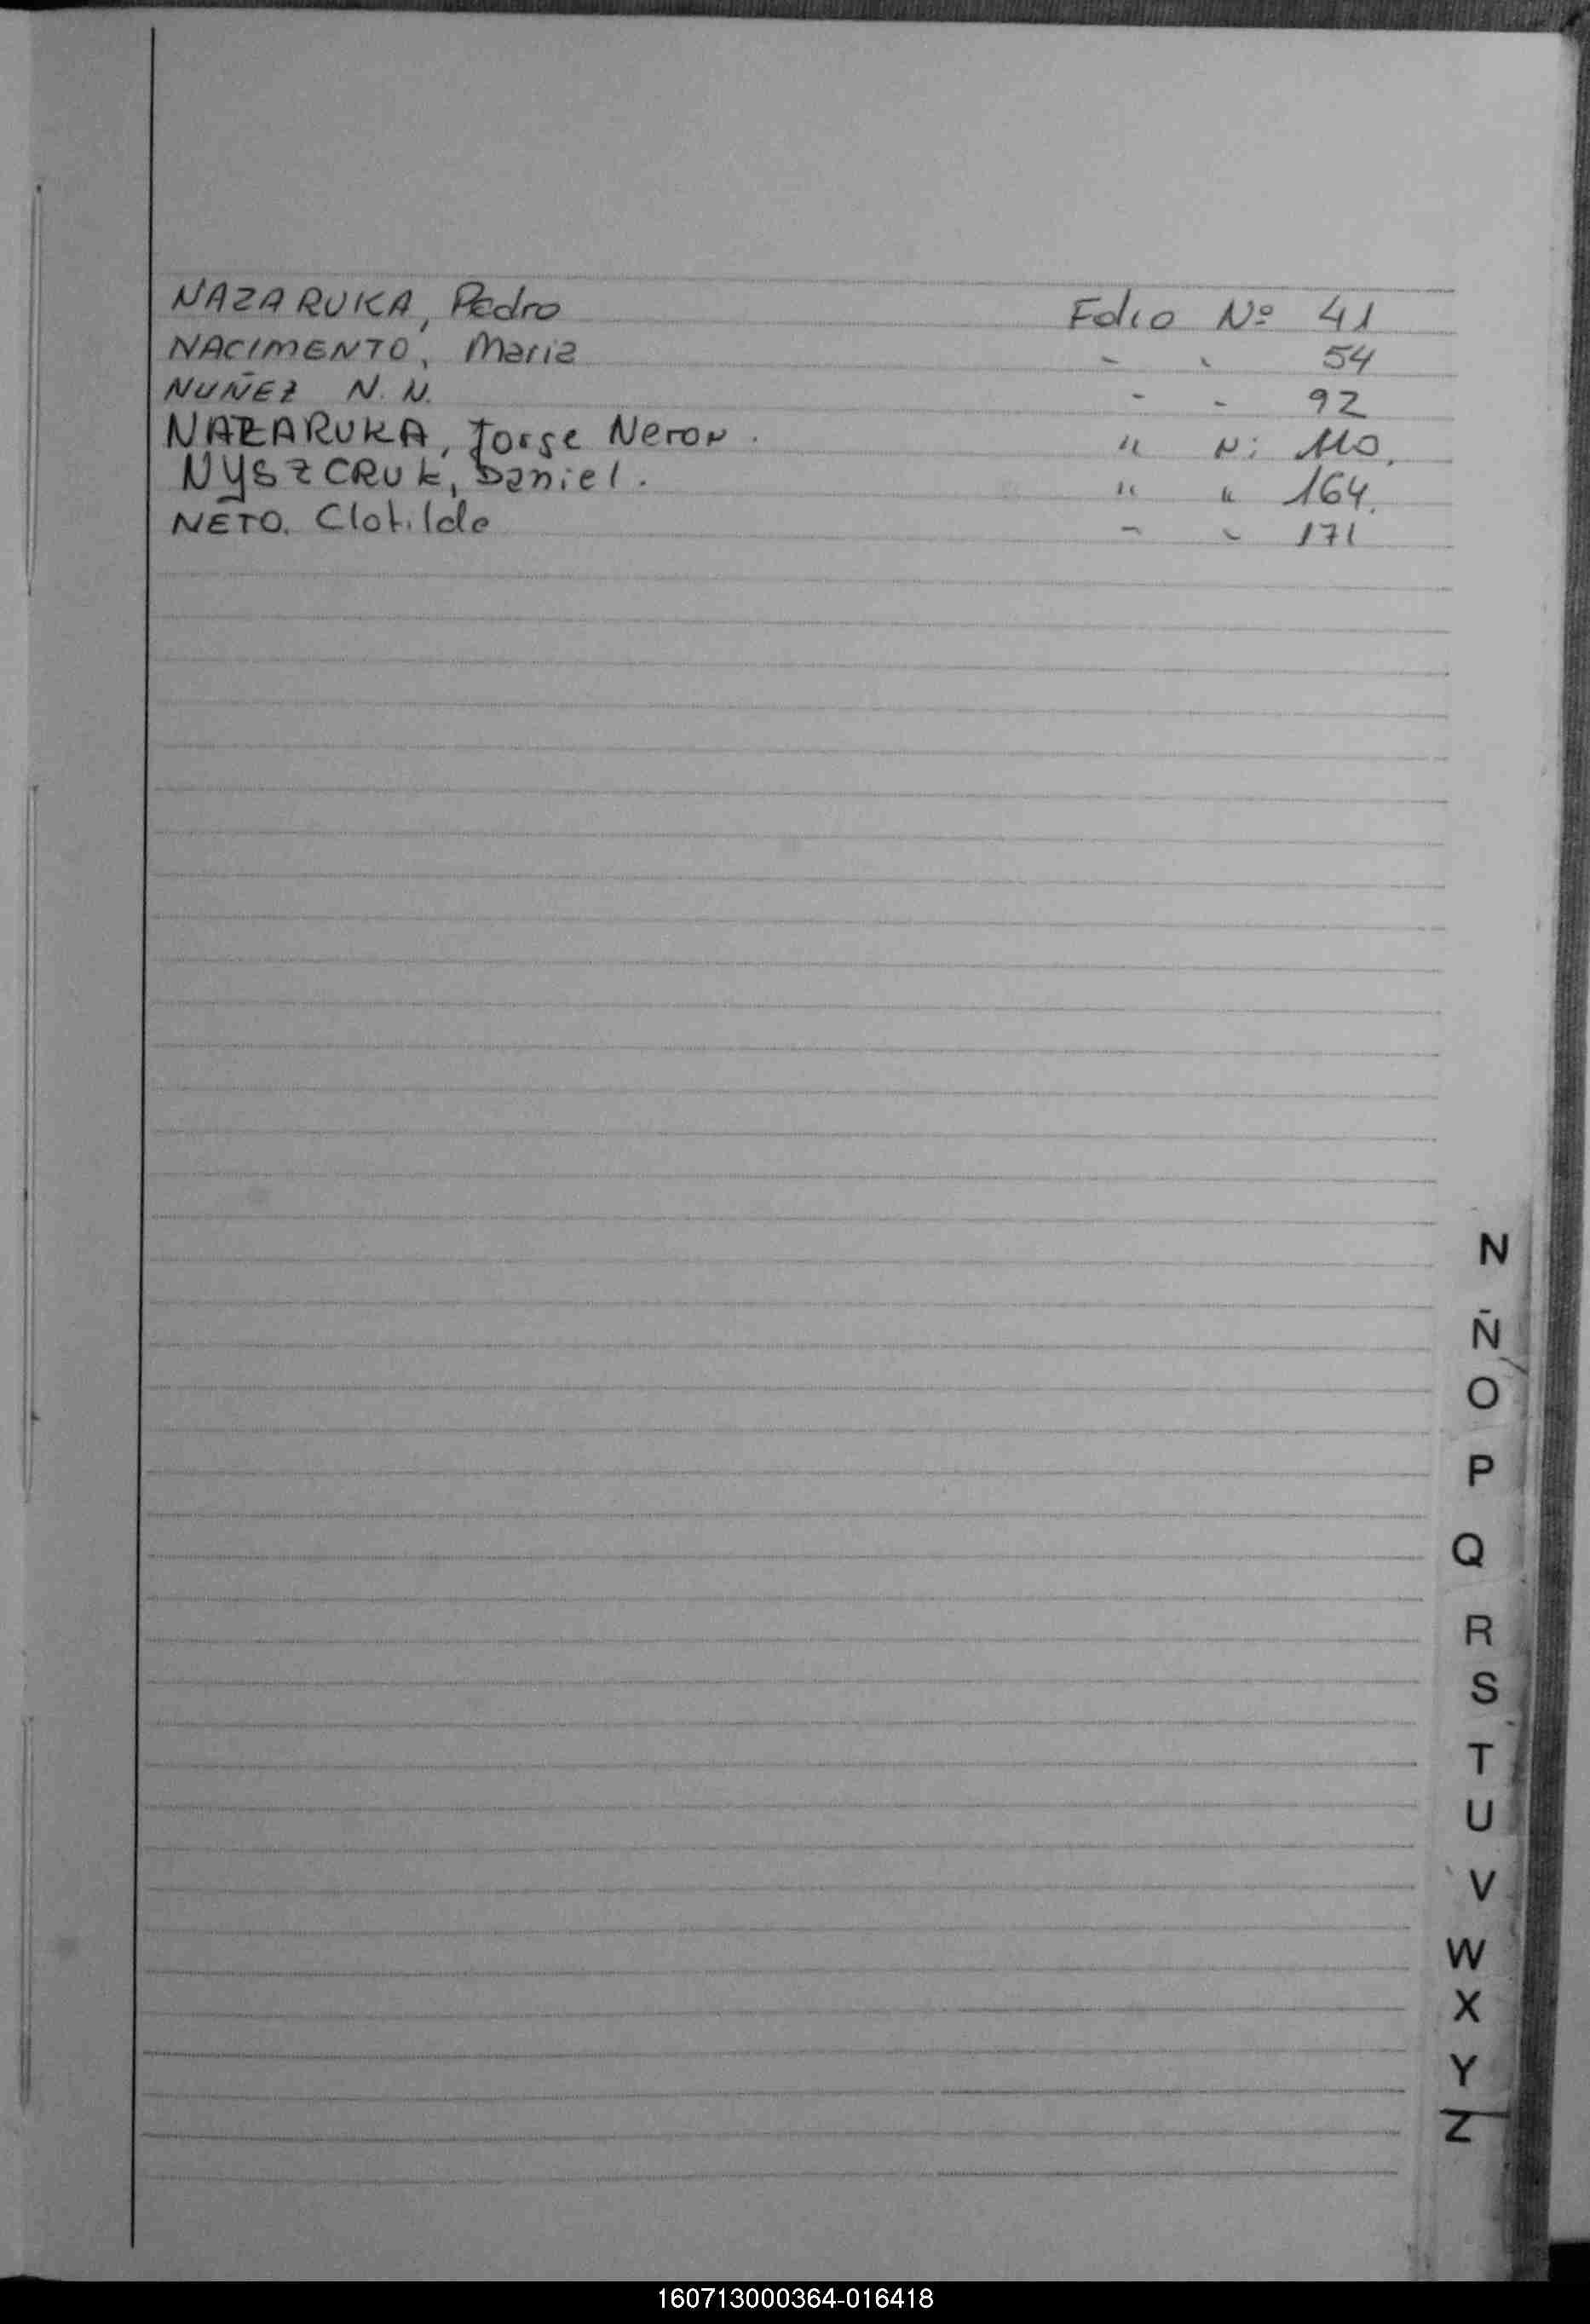 NAZARUKA, Pedro Folio Nº 41
NACIMENTO, Maria - - 54
NUÑEZ N. N. - - 92
NAZARUKA, Jorge Neron. " N: 110.
NYSZCRUK, Daniel. " " 164.
NETO. Clotilde - - 171
N
Ñ
O
P
Q
R
S
T
U
V
W
X
Y
Z
160713000364-016418